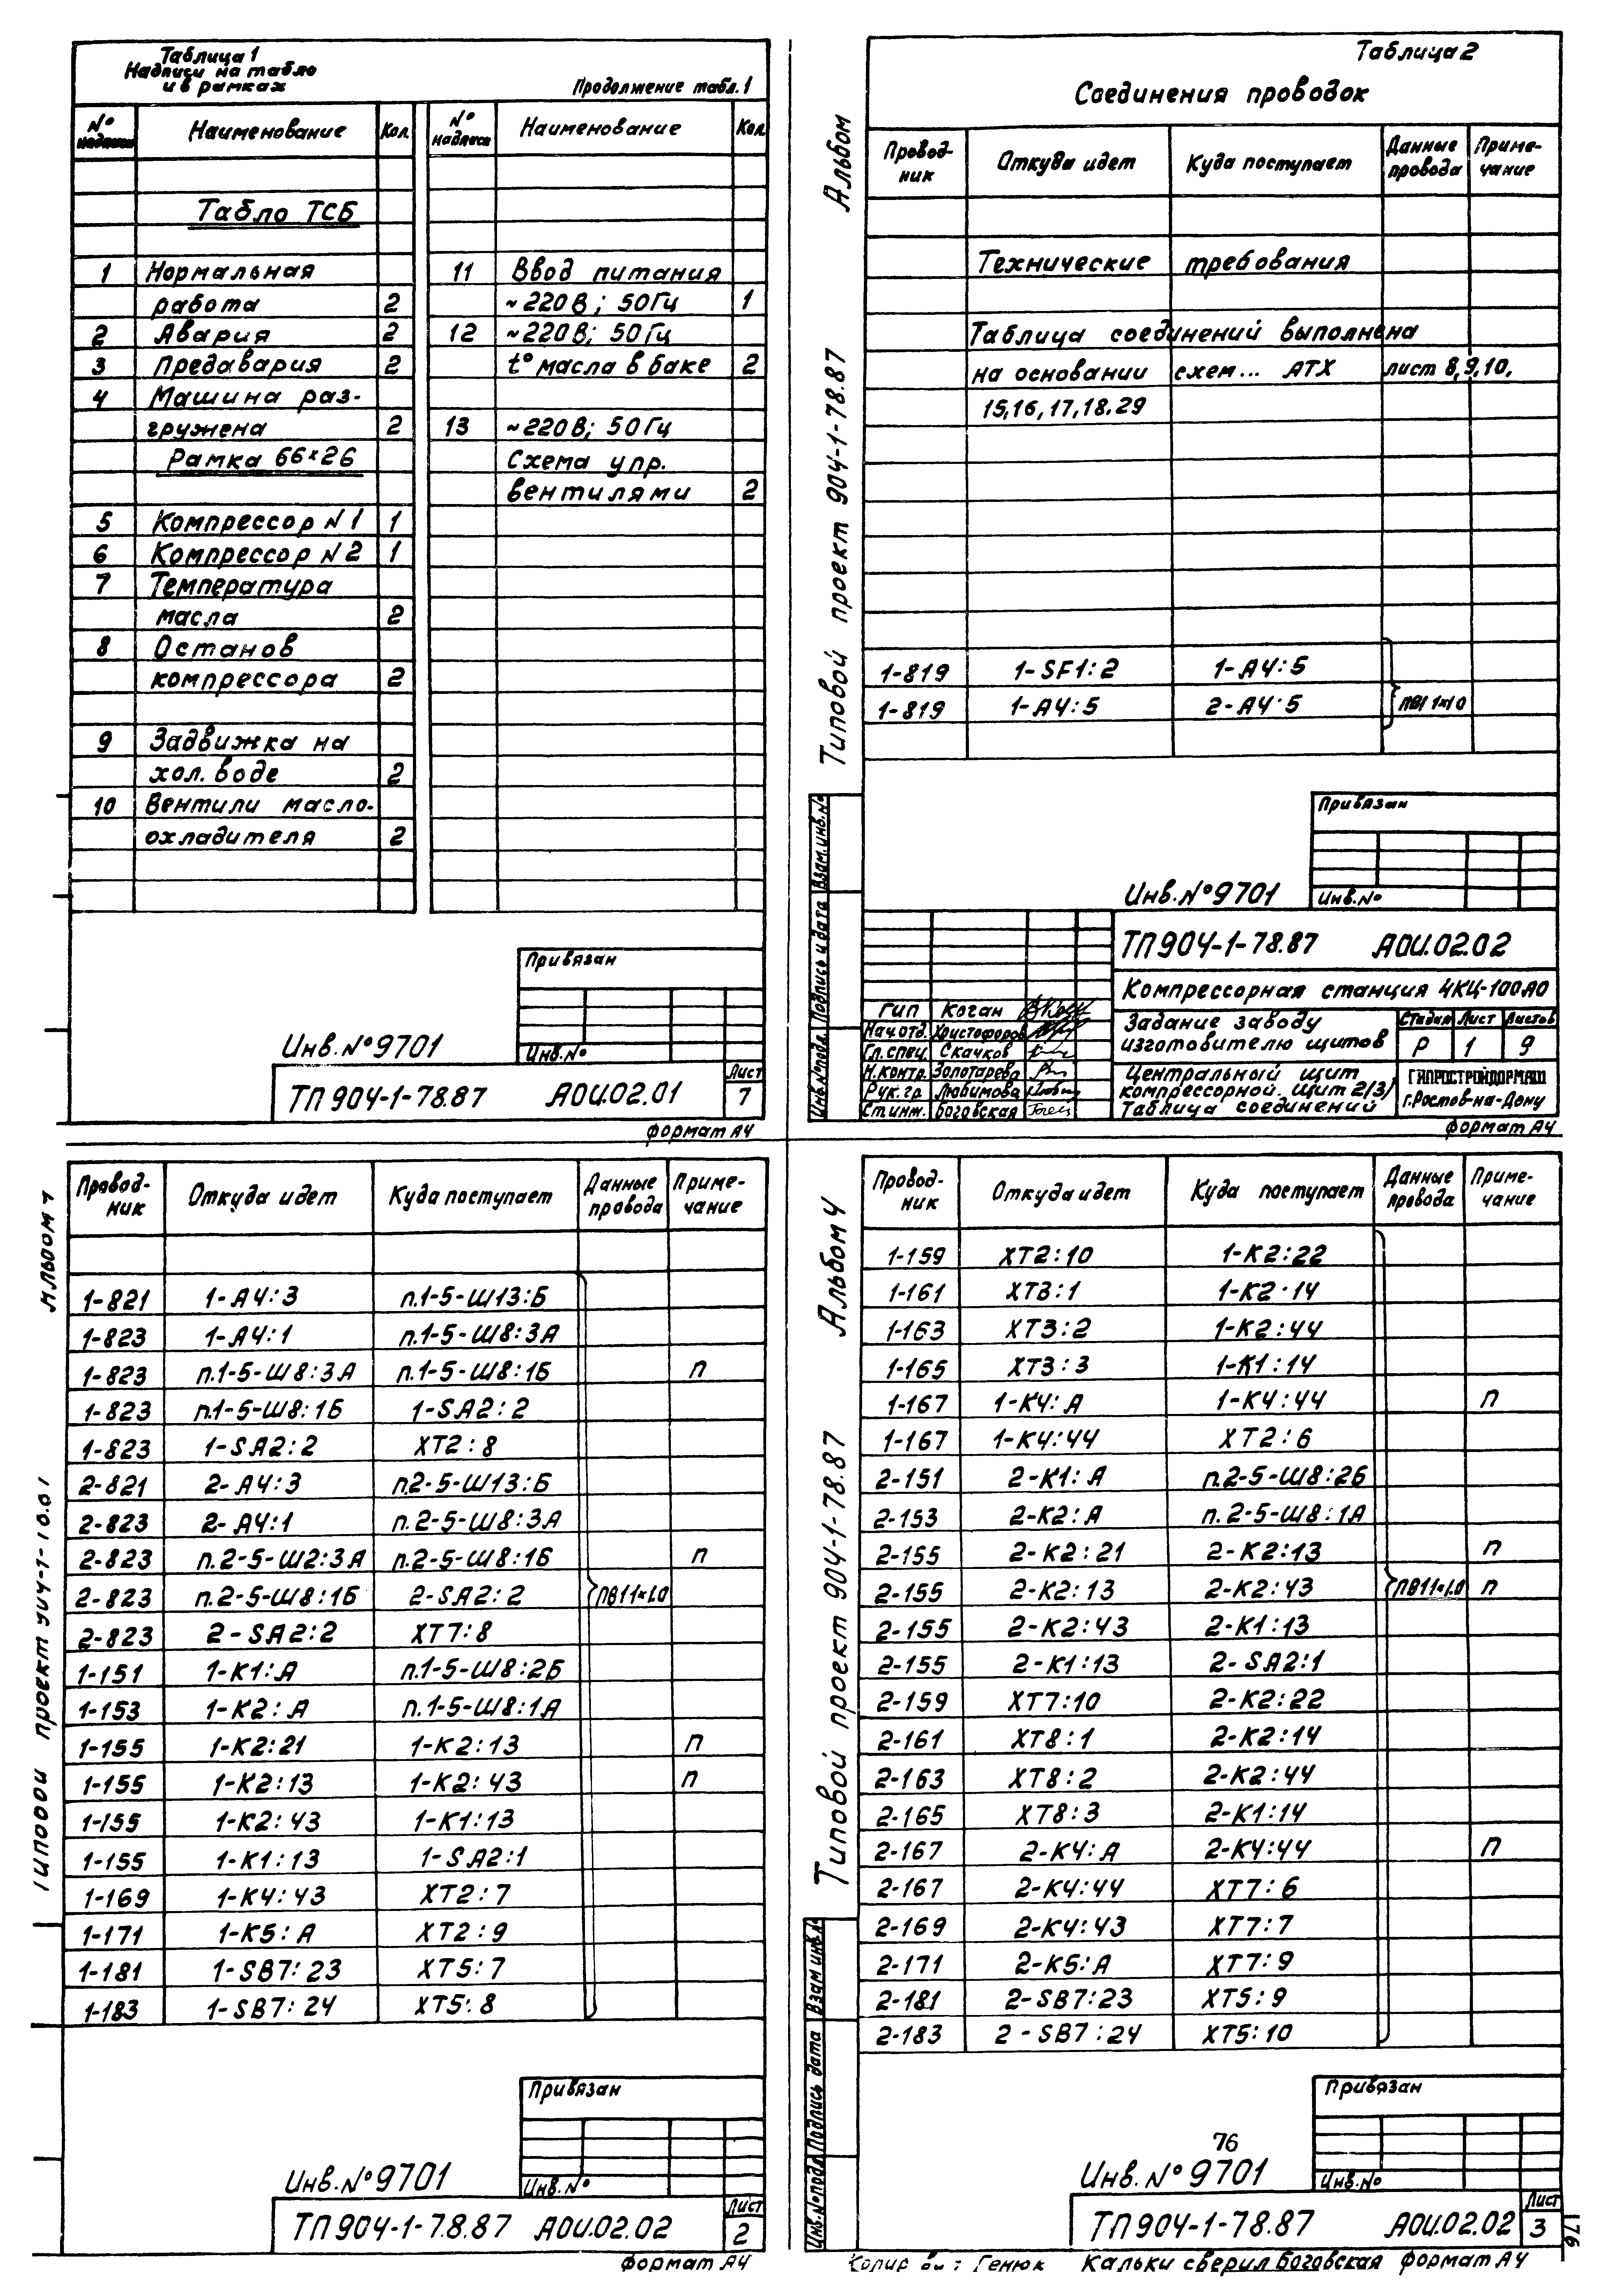 Таблица 1
Надписи на табло
и в рамках
Продолжение табл. 1
№ надписи Наименование Кол. № надписи Наименование Кол.
Табло ТСБ
1 Нормальная 11 Ввод питания
работа 2 ~220В; 50Гц 1
2 Авария 2 12 ~220В; 50Гц
3 Предавария 2 t° масла в баке 2
4 Машина раз-
гружена 2 13 ~220В; 50Гц
Рамка 66×26 Схема упр.
вентилями 2
5 Компрессор N1 1
6 Компрессор N2 1
7 Температура
масла 2
8 Останов
компрессора 2
9 Задвижка на
хол. воде 2
10 Вентили масло-
охладителя 2
Привязан
Инв.№
Инв.№9701
ТП904-1-78.87 АОИ.02.01
Лист
7
формат А4
Таблица 2
Соединения проводок
Альбом
Типовой проект 904-1-78.87
Провод-
ник Откуда идет Куда поступает Данные
провода Приме-
чание
Технические требования
Таблица соединений выполнена
на основании схем... АТХ лист 8,9,10,
15,16,17,18.29
1-819 1-SF1:2 1-А4:5
1-819 1-А4:5 2-А4:5
ПВ1 1×1.0
Привязан
Инв.№
Инв.№9701
Взам.инв.№
Подпись и дата
Инв.№подл.
ТП904-1-78.87 АОИ.02.02
Компрессорная станция 4КЦ-100А0
ГИП Коган
Нач.отд. Христофоров
Гл.спец. Скачков
Н.контр. Золотарева
Рук.гр. Любимова
Ст.инж. Боговская
Задание заводу
изготовителю щитов
Стадия Лист Листов
Р 1 9
Центральный щит
компрессорной. Щит 2/3/
Таблица соединений
ГИПРОСТРОЙДОРМАШ
г.Ростов-на-Дону
формат А4
проект
Провод-
ник Откуда идет Куда поступает Данные
провода Приме-
чание
1-821 1-А4:3 п.1-5-Ш13:Б
1-823 1-А4:1 п.1-5-Ш8:3А
1-823 п.1-5-Ш8:3А п.1-5-Ш8:1Б п
1-823 п.1-5-Ш8:1Б 1-SA2:2
1-823 1-SA2:2 ХТ2:8
2-821 2-А4:3 п.2-5-Ш13:Б
2-823 2-А4:1 п.2-5-Ш8:3А
2-823 п.2-5-Ш2:3А п.2-5-Ш8:1Б п
2-823 п.2-5-Ш8:1Б 2-SA2:2 ПВ1 1×1.0
2-823 2-SA2:2 ХТ7:8
1-151 1-К1:А п.1-5-Ш8:2Б
1-153 1-К2:А п.1-5-Ш8:1А
1-155 1-К2:21 1-К2:13 п
1-155 1-К2:13 1-К2:43 п
1-155 1-К2:43 1-К1:13
1-155 1-К1:13 1-SA2:1
1-169 1-К4:43 ХТ2:7
1-171 1-К5:А ХТ2:9
1-181 1-SB7:23 ХТ5:7
1-183 1-SB7:24 ХТ5:8
Привязан
Инв.№
Инв.№9701
ТП904-1-78.87 АОИ.02.02
Лист
2
формат А4
Альбом 4
Типовой проект 904-1-78.87
Провод-
ник Откуда идет Куда поступает Данные
провода Приме-
чание
1-159 ХТ2:10 1-К2:22
1-161 ХТ3:1 1-К2:14
1-163 ХТ3:2 1-К2:44
1-165 ХТ3:3 1-К1:14
1-167 1-К4:А 1-К4:44 п
1-167 1-К4:44 ХТ2:6
2-151 2-К1:А п.2-5-Ш8:2Б
2-153 2-К2:А п.2-5-Ш8:1А
2-155 2-К2:21 2-К2:13 п
2-155 2-К2:13 2-К2:43 ПВ1 1×1.0 п
2-155 2-К2:43 2-К1:13
2-155 2-К1:13 2-SA2:1
2-159 ХТ7:10 2-К2:22
2-161 ХТ8:1 2-К2:14
2-163 ХТ8:2 2-К2:44
2-165 ХТ8:3 2-К1:14
2-167 2-К4:А 2-К4:44 п
2-167 2-К4:44 ХТ7:6
2-169 2-К4:43 ХТ7:7
2-171 2-К5:А ХТ7:9
2-181 2-SB7:23 ХТ5:9
2-183 2-SB7:24 ХТ5:10
Привязан
Инв.№
76
Инв.№9701
Взам инв.№
Подпись дата
Инв.№подл
ТП904-1-78.87 АОИ.02.02
Лист
3
176
Генюк Кальки сверил Боговская формат А4